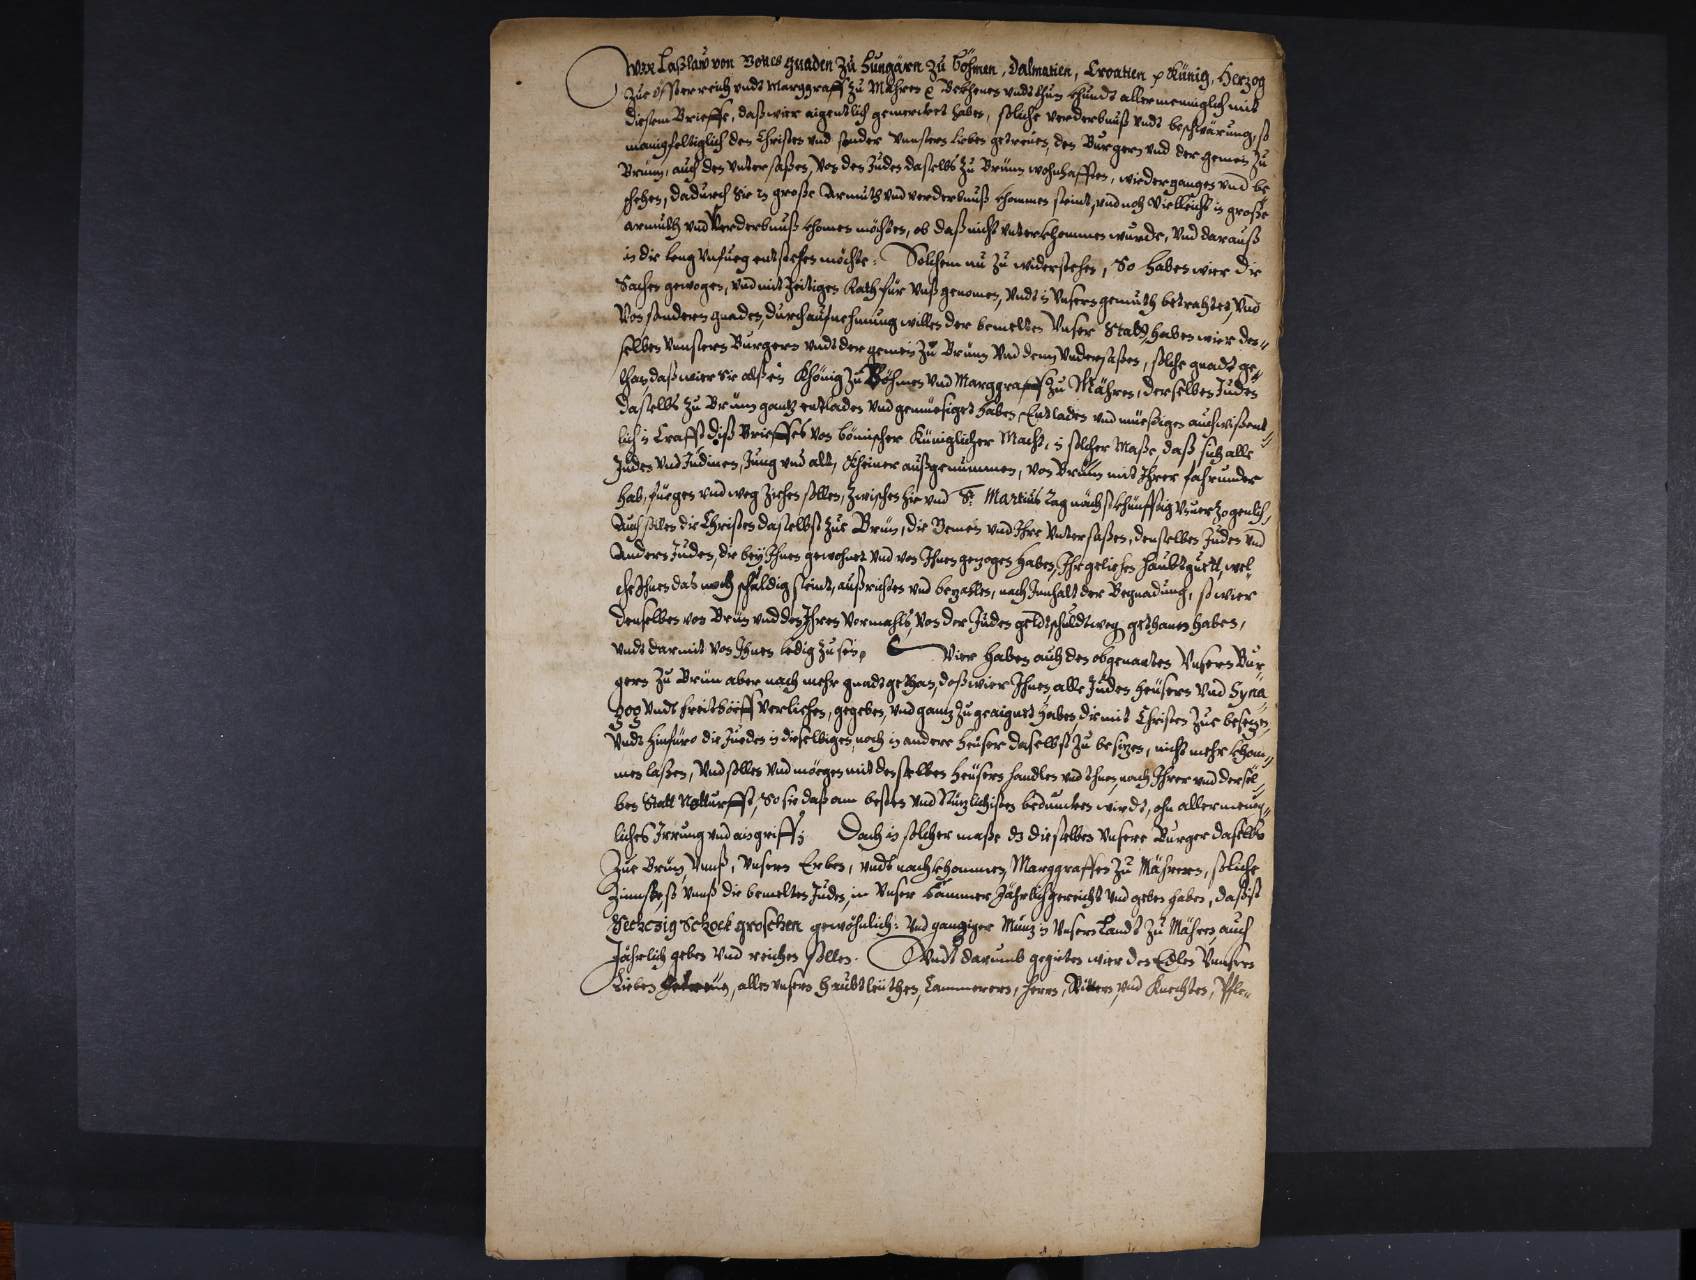 Wier Laßlaw von Gottes gnaden zu Hungärn zu Böhmen, Dalmatien, Croatien p Künig, Herzog
Zue össterreich undt Marggraff zu Mähren p Bekhenen undt thun khundt allermeniglich mit
diesem Brieffe, daß wier aigentlich gemerket haben, solche verderbnuß undt beschwärung, so
manigfeltiglich den Christen und sonder unsseren lieben getreuen, den Burgern und der gemein zu
Brünn, auch den untersaßen, von den Juden daselbs zu Brünn wohnhafften, wiederganges und be
schehen, dadurch sie in große Armuth und verderbnuß khommen seint, und noch vielleicht in große
armuth und Verderbnuß khomen möchten, ob daß nicht unterkhommen wurde, und darauß
in die leng unfueg entstehen möchte: Solchem nu zu widerstehen, So haben wier die
Sachen gewogen, und mit zeitigen Rath für unß genomen, undt in unsern gemuth betrachtet, und
von sondern gnaden, durch aufnehmung willen der bemelten unser Stadt, haben wier den-
selben unsseren Burgern undt der gemein zu Brünn und denn undersaßen, solche gnadt ge-
than, daß wier sie alß ein Khönig zu Böhmen und Marggraff zu Mähren, derselben Juden
daselbs zu Brünn gantz entladen und gemüesiget haben, Entladen und müeßigen auch wißent-
lich in Crafft diß Brieffes von bömischer Küniglicher Macht, in solcher Maße, daß sich alle
Juden und Judinen, Jung und alt, kheiner außgenummen, von Brünn mit Ihrer fahrunder
hab, füegen und weg ziehen sollen, zwischen hie und St. Martins Tag nächst khünfftig unverzogenlich,
Auch sollen die Christen daselbst zue Brün, die Gemein und Ihre untersaßen, denselben Juden und
Andern Juden, die beÿ Ihnen gewohnet und von Ihnen gezogen haben, Ihr geliehen Haubtguett, wel-
che Ihnen das noch schuldig seint, außrichten und bezallen, nach Innhalt der Begnadung, so wier
denselben von Brün und den Ihren vormahls, von der Juden geldtschuldt weg gethanen haben,
undt darmit von Ihnen ledig zu sein. Wier haben auch den obgenanten unsern Bur-
gern zu Brün aber nach mehr gnadt gethan, daß wier Ihnen alle Juden heüsern und Syna
gog undt freithöeff verliehen, gegeben, und gantz zu geaignet haben die mit Christen zue besezen,
undt hinfüro die Jueden in dieselbigen, noch in andere heüser daselbst zu besizen, nicht mehr khom-
men laßen, und sollen und mögen mit denselben heüsern handlen und thuen, nach Ihrer und dersel-
ben Statt Notturfft, So sie daß am besten und Nuzlichisten bedunken wirdt, ohn allermenig-
liches Irrung und aingriff; Doch in solcher maße dz dieselben unsere Burger daselbs
zue Brün, unß, unsern Erben, undt nachkhommen, Marggraffen zu Mähreren, solche
Zinnse, so unß die bemelten Juden, in unser Cammer Jährlich gereicht und geben haben, daß ist
Sechczig Schock groschen gewöhnlich: und ganziger Münz in unsern Landt zu Mähren, auch
Jährlich geben und reichen sollen. Undt darumb gepieten wier den Edlen unsseren
Lieben getreuen, allen unsern Haubtleüthen, Cammerern, Herrn, Rittern, und Knechten, Pfle-